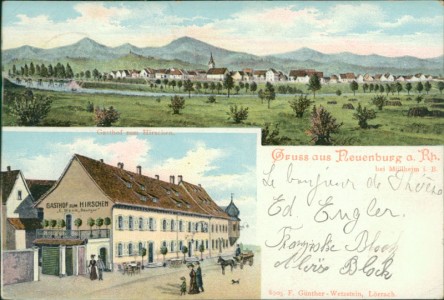 Gasthof zum Hirschen.
Gruss aus Neuenburg a. Rh.
bei Müllheim i. B.
GASTHOF ZUM HIRSCHEN
Le bonjour de
Ed Engler.
Franziska Block
Block
Verl. F. Günther-Wetzstein, Lörrach.